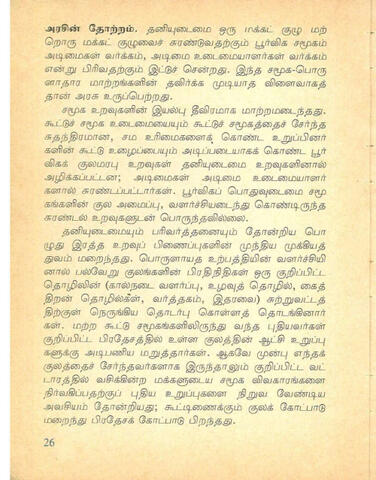 அரசின் தோற்றம். தனியுடைமை ஒரு மக்கட் குழு மற்
றொரு மக்கட் குழுவைச் சுரண்டுவதற்கும் பூர்விக சமூகம்
அடிமைகள் வர்க்கம், அடிமை உடையாளர்கள் வர்க்கம்
என்று பிரிவதற்கும் இட்டுச் சென்றது. இந்த சமூக-பொரு
ளாதார மாற்றங்களின் தவிர்க்க முடியாத விளைவாகத்
தான் அரசு உருப்பெற்றது.
சமூக உறவுகளின் இயல்பு தீவிரமாக மாற்றமடைந்தது.
கூட்டுச் சமூக உடைமையையும் கூட்டுச் சமூகத்தைச் சேர்ந்த
சுதந்திரமான, சம உரிமைகளைக் கொண்ட உறுப்பினர்
களின் கூட்டு உழைப்பையும் அடிப்படையாகக் கொண்ட பூர்
விகக் குலமரபு உறவுகள் தனியுடைமை உறவுகளினால்
அழிக்கப்பட்டன; அடிமைகள் அடிமை உடைமையாளர்
களால் சுரண்டப்பட்டார்கள். பூர்விகப் பொதுவுடைமை சமூ
கங்களின் குல அமைப்பு, வளர்ச்சியடைந்து கொண்டிருந்த
சுரண்டல் உறவுகளுடன் பொருந்தவில்லை.
தனியுடைமையும் பரிவர்த்தனையும் தோன்றிய பொ
ழுது இரத்த உறவுப் பிணைப்புகளின் முந்திய முக்கியத்
துவம் மறைந்தது. பொருளாயத உற்பத்தியின் வளர்ச்சியி
னால் பல்வேறு குலங்களின் பிரதிநிதிகள் ஒரு குறிப்பிட்ட
தொழிலின் (கால்நடை வளர்ப்பு, உழவுத் தொழில், கைத்
திறன் தொழில்கள், வர்த்தகம், இதரவை) சுற்றுவட்டத்
திற்குள் நெருங்கிய தொடர்பு கொள்ளத் தொடங்கினார்
கள். மற்ற கூட்டு சமூகங்களிலிருந்து வந்த புதியவர்கள்
குறிப்பிட்ட பிரதேசத்தில் உள்ள குலத்தின் ஆட்சி உறுப்பு
களுக்கு அடிபணிய மறுத்தார்கள். ஆகவே முன்பு எந்தக்
குலத்தைச் சேர்ந்தவர்களாக இருந்தாலும் குறிப்பிட்ட வட்
டாரத்தில் வசிக்கின்ற மக்களுடைய சமூக விவகாரங்களை
நிர்வகிப்பதற்குப் புதிய உறுப்புகளை நிறுவ வேண்டிய
அவசியம் தோன்றியது; கூட்டிணைக்கும் குலக் கோட்பாடு
மறைந்து பிரதேசக் கோட்பாடு பிறந்தது.
26